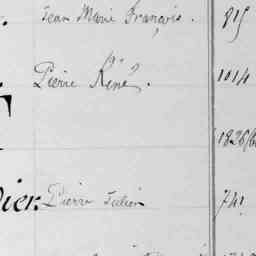 Jean Marie François. 815
Pierre René. 1014
1826/6
dier. Pierre Julien 741